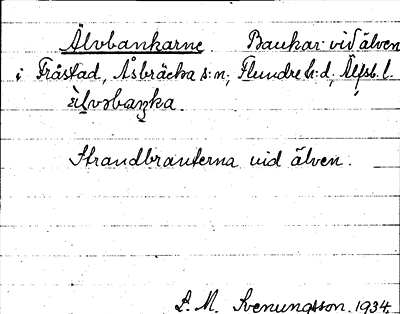 Älvbankarne. Bankar vid älven
i Fråstad, Åsbräcka s:n; Flundre h:d; Älfsb. l.
älvəbaŋka.
Strandbranterna vid älven.
L. M. Svenungsson. 1934.